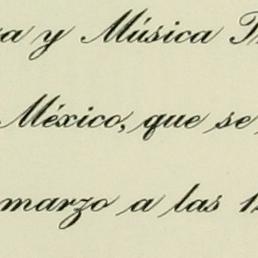 a y Música
México, que se
marzo a las 1